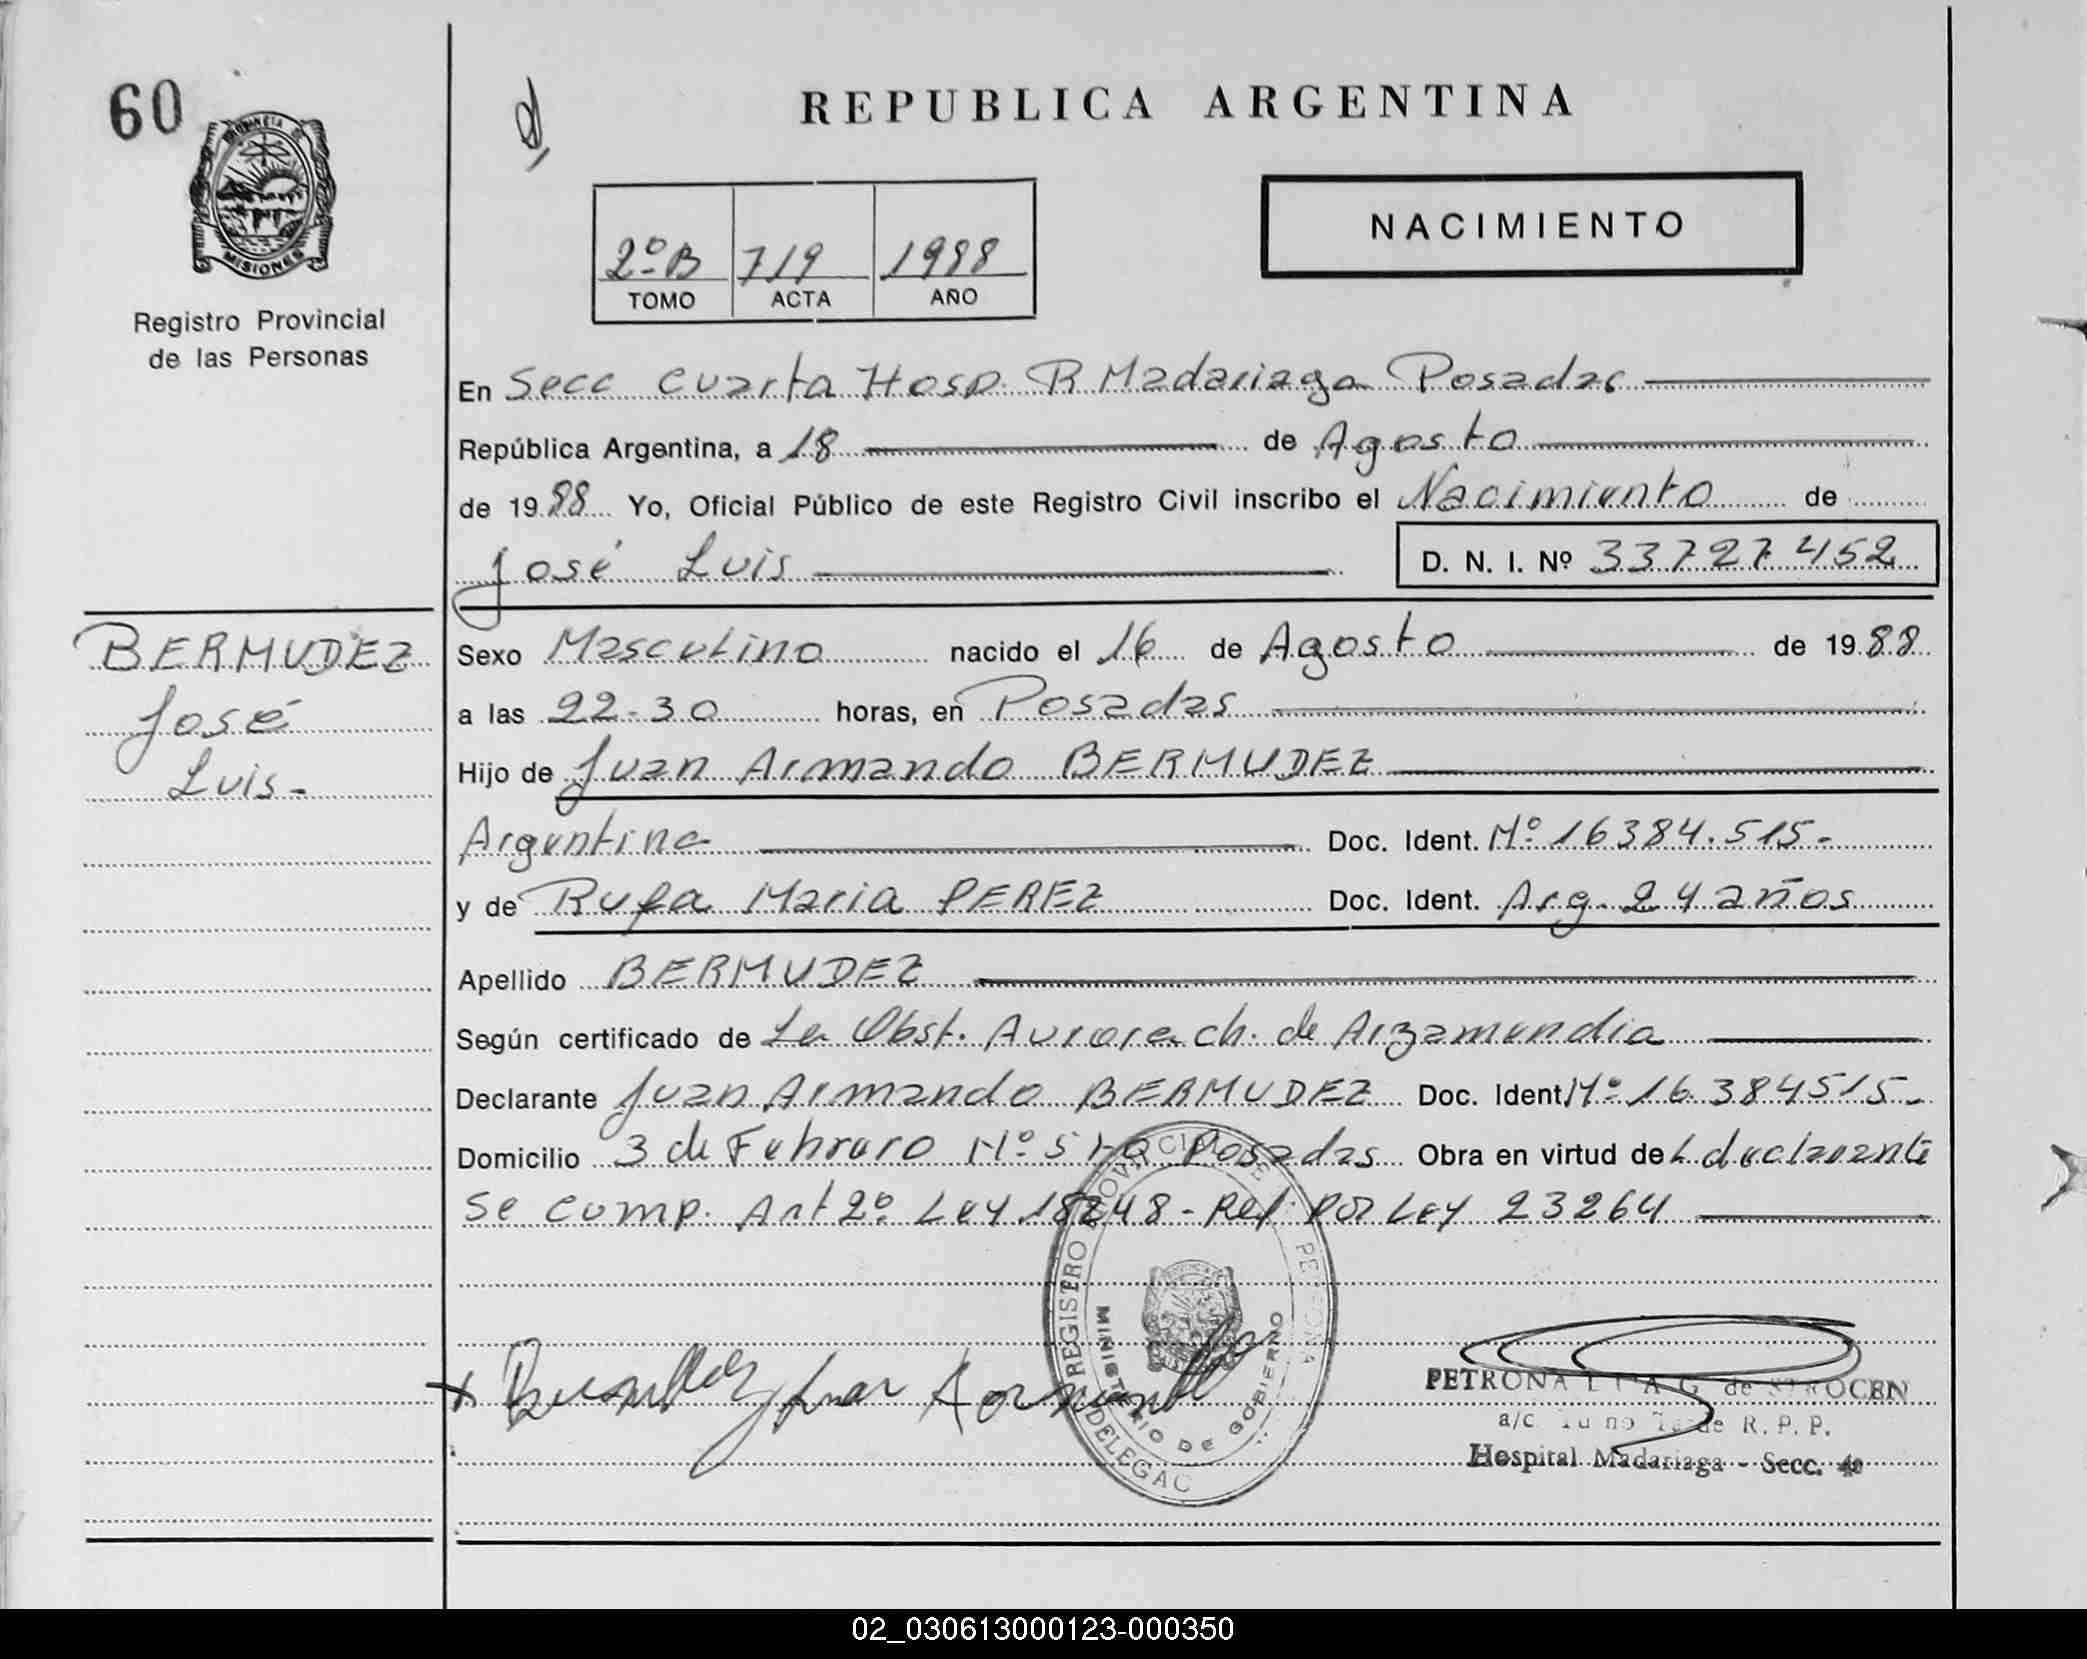 60
PROVINCIA DE
MISIONES
Registro Provincial
de las Personas
REPUBLICA ARGENTINA
NACIMIENTO
2º B 719 1988
TOMO ACTA AÑO
En Secc Cuarta Hosp. R Madariaga Posadas
República Argentina, a 18 de Agosto
de 1988 Yo, Oficial Público de este Registro Civil inscribo el Nacimiento de
José Luis D. N. I. Nº 33727452
BERMUDEZ
José
Luis-
Sexo Masculino nacido el 16 de Agosto de 1988
a las 22-30 horas, en Posadas
Hijo de Juan Armando BERMUDEZ
Argentina Doc. Ident. Mº 16384.515-
y de Rufa Maria PEREZ Doc. Ident. Arg. 24 años
Apellido BERMUDEZ
Según certificado de La Obst. Aurora ch. de Arzamendia
Declarante Juan Armando BERMUDEZ Doc. Ident Mº 16.384515-
Domicilio 3 de Febrero Nº Posadas Obra en virtud de L declarante
Se Comp. Art 2º Ley 18248- Ref. por Ley 23264
REGISTRO PROVINCIAL DE PERSONA
MINISTERIO DE GOBIERNO
DELEGAC
Juan Armando
PETRONA de
a/c de R. P. P.
Hospital Madariaga - Secc. 4ª
02_030613000123-000350